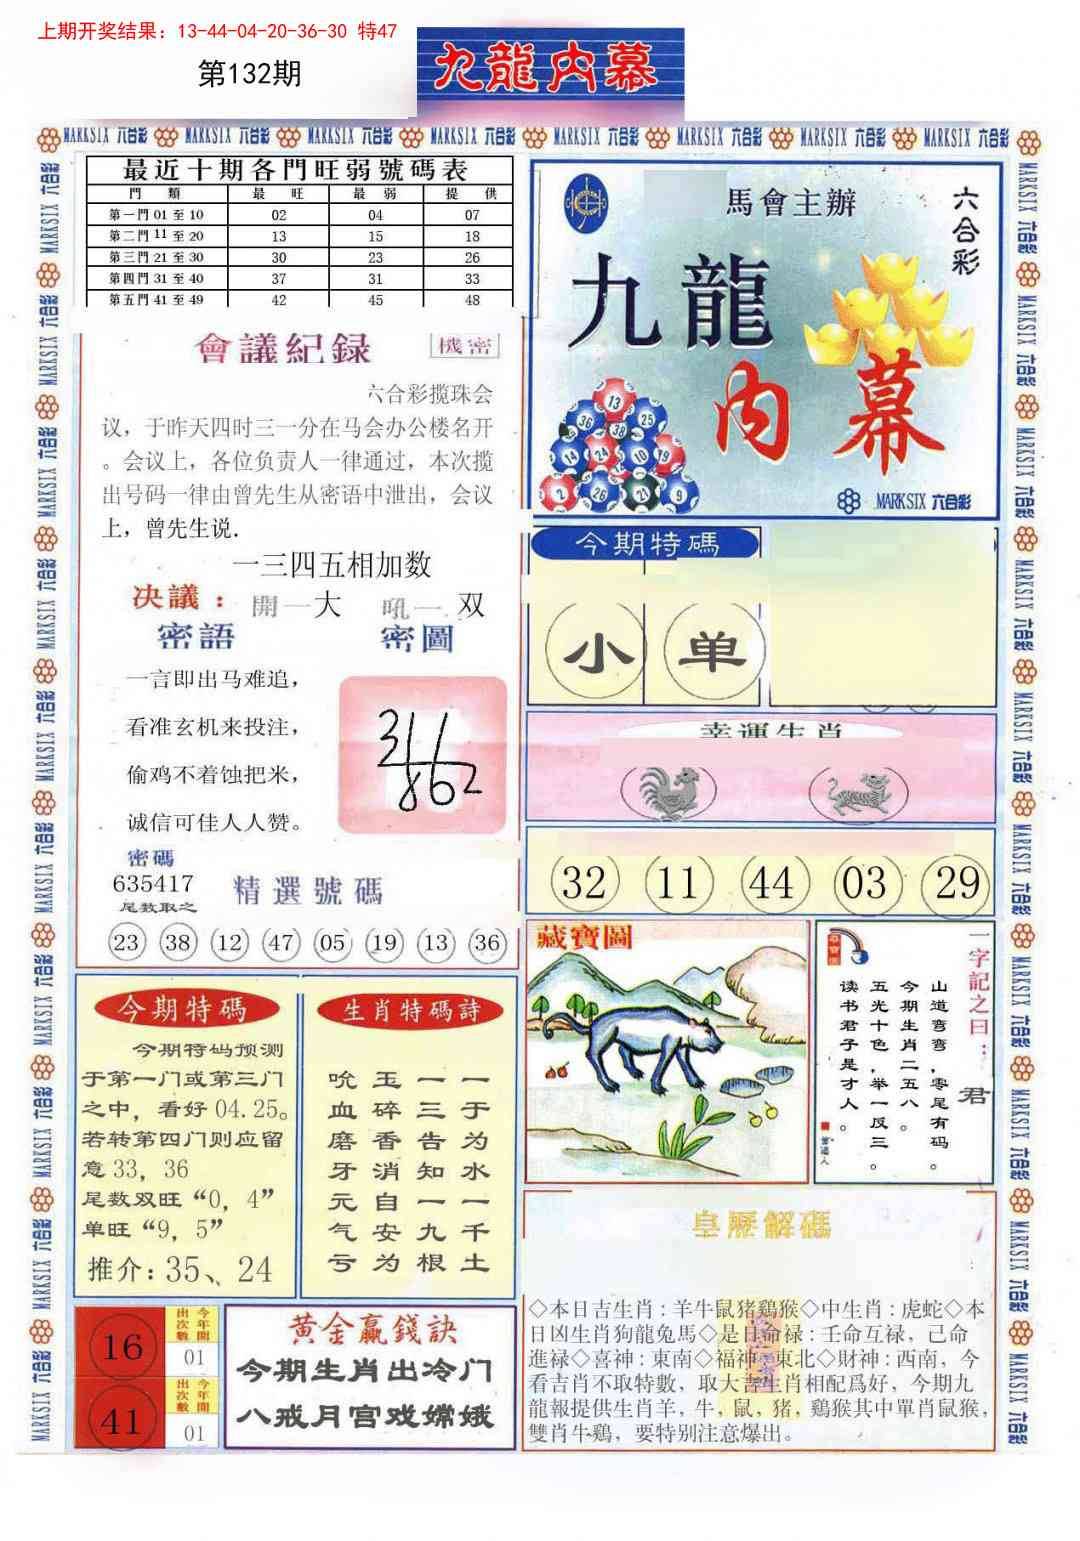 上期开奖结果：13-44-04-20-36-30 特47
第132期
九龍内幕
MARKSIX 六合彩 MARKSIX 六合彩 MARKSIX 六合彩 MARKSIX 六合彩 MARKSIX 六合彩 MARKSIX 六合彩 MARKSIX 六合彩 MARKSIX 六合彩
最近十期各門旺弱號碼表
門類 最旺 最弱 提供
第一門 01 至 10 02 04 07
第二門 11 至 20 13 15 18
第三門 21 至 30 30 23 26
第四門 31 至 40 37 31 33
第五門 41 至 49 42 45 48
會議紀録 機密
六合彩揽珠会
议，于昨天四时三一分在马会办公楼名开
。会议上，各位负责人一律通过，本次揽
出号码一律由曾先生从密语中泄出，会议
上，曾先生说.
一三四五相加数
决議： 開一大 吼一双
密語 密圖
一言即出马难追，
看准玄机来投注，
偷鸡不着蚀把米，
诚信可佳人人赞。
密碼
635417
尾数取之
精選號碼
23 38 12 47 05 19 13 36
馬會主辦
六合彩
九龍
内幕
13
36 38 25
14 24 10 19
2 26 21 9
MARKSIX 六合彩
今期特碼
小 单
幸運生肖
32 11 44 03 29
藏寶圖
一字記之曰：君
山道弯弯，零尾有码。
今期生肖二五八。
五光十色，举一反三。
读书君子是才人。
今期特碼
今期特码预测
于第一门或第三门
之中，看好 04.25。
若转第四门则应留
意 33，36
尾数双旺“0，4”
单旺“9，5”
推介：35、24
生肖特碼詩
一于为水一千土
一三告知一九根
玉碎香消自安为
吮血磨牙元气亏
16 今年開出次數 01
41 今年開出次數 01
黄金贏錢訣
今期生肖出冷门
八戒月宫戏嫦娥
皇歷解碼
◇本日吉生肖：羊牛鼠猪鷄猴◇中生肖：虎蛇◇本
日凶生肖狗龍兔馬◇是日命禄：壬命互禄，己命
進禄◇喜神：東南◇福神：東北◇財神：西南，今
看吉肖不取特數，取大吉生肖相配爲好，今期九
龍報提供生肖羊，牛，鼠，猪，鷄猴其中單肖鼠猴，
雙肖牛鷄，要特别注意爆出。